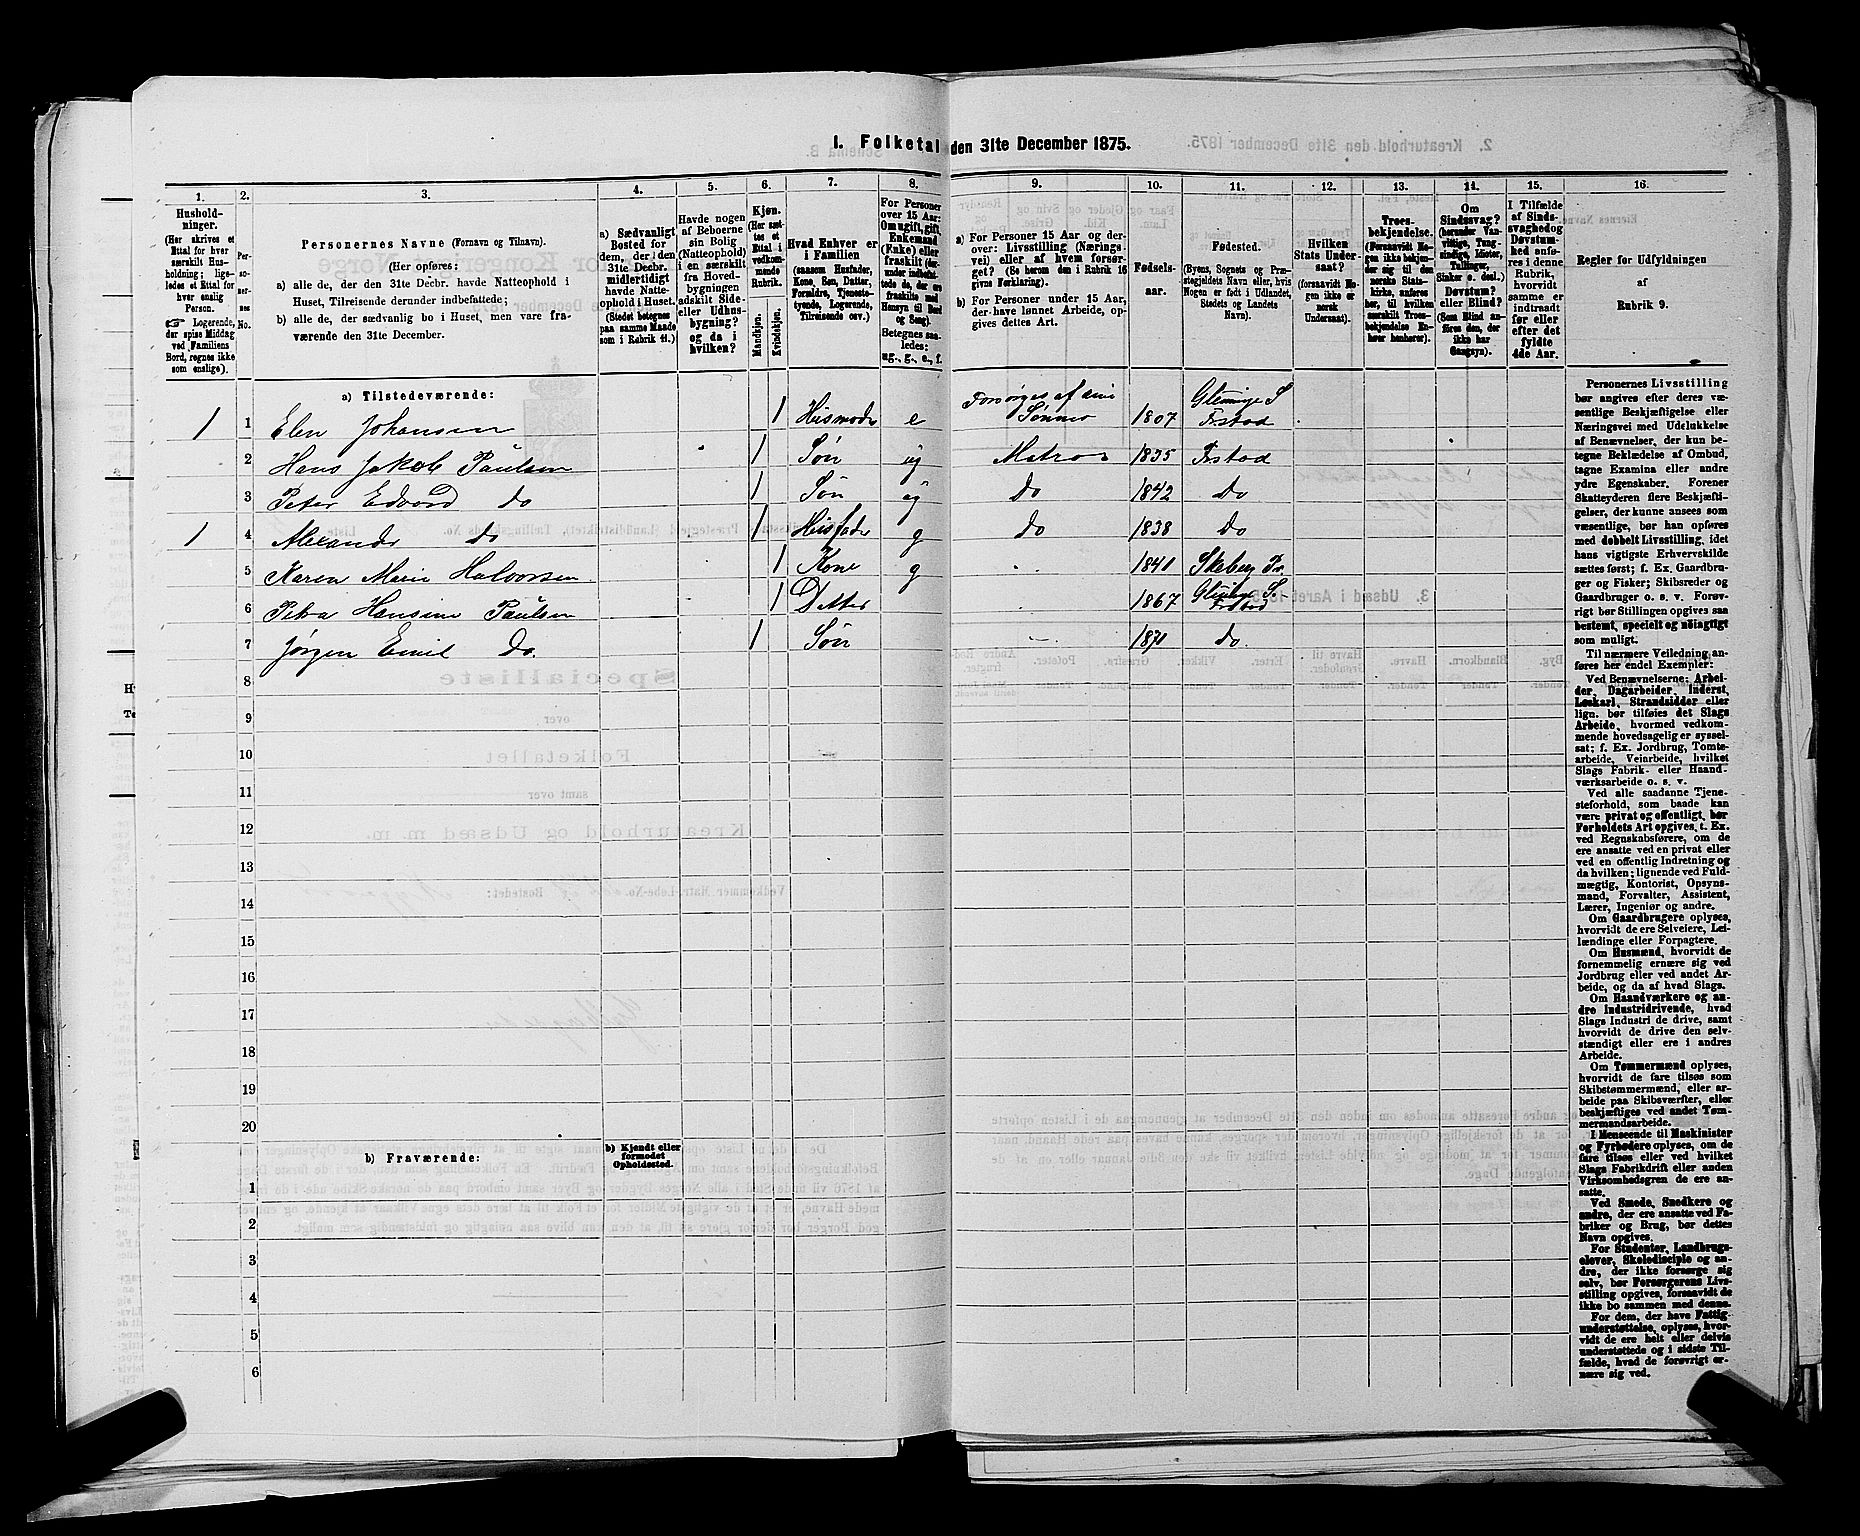 I. Folketal den 31te December 1875.
1.
2.
3.
4.
5.
6.
7.
8.
9.
10.
11.
12.
13.
14.
15.
16.
Hushold-
ninger.
(Her skrives et
Ettal for hver
særskilt Hus-
holdning; lige-
ledes et Ettal for
hver enslig
Person.
☞ Logerende,
der spise Middag
ved Familiens
Bord, regnes ikke
som enslige).
Per-
so-
ner-
nes
No.
Personernes Navne (Fornavn og Tilnavn).
(Her opføres:
a) alle de, der den 31te Decbr. havde Natteophold i
Huset, Tilreisende derunder indbefattede;
b) alle de, der sædvanlig bo i Huset, men vare fra-
værende den 31te December.
a) Sædvanligt
Bosted for
dem, der den
31te Decbr.
midlertidigt
havde Natte-
ophold i Huset.
(Stedet betegnes
paa samme Maade
som i Rubrik 11.)
Havde nogen
af Beboerne
sin Bolig
(Natteophold)
i en særskilt
fra Hoved-
bygningen
adskilt Side-
eller Udhus-
bygning?
og da i
hvilken?
Kjøn.
(Her sæt-
tes et
Ettal i
vedkom-
mende
Rubrik.
Mandkjøn.
Kvindekjøn.
Hvad Enhver er
i Familien
(saasom Husfader,
Kone, Søn, Datter,
Forældre, Tjeneste-
tyende, Logerende,
Tilreisende osv.)
For Personer
over 15 Aar:
Om ugift, gift,
Enkemand
(Enke) eller
fraskilt (der-
under indbefat-
tede de, der ere
fraskilte med
Hensyn til Bord
og Seng).
Betegnes saa-
ledes:
ug., g., e., f.
a) For Personer 15 Aar og der-
over: Livsstilling (Nærings-
vei) eller af hvem forsør-
get? (Se herom den i Rubrik 16
givne Forklaring).
b) For Personer under 15 Aar,
der have lønnet Arbeide, op-
gives dettes Art.
Fødsels-
aar.
Fødested.
(Byens, Sognets og Præ-
stegjeldets Navn eller, hvis
Nogen er født i Udlandet,
Stedets og Landets
Navn).
Hvilken
Stats Under-
saat?
(forsaavidt No-
gen ikke er
norsk
Undersaat).
Troes-
bekjendelse.
(Forsaavidt No-
gen ikke bekjen-
der sig til den
norske Stats-
kirke, anføres
her, til hvilken
særskilt Troes-
bekjendelse En-
hver henhører).
Om
Sindssvag?
(herunder Van-
vittige, Tung-
sindige, Idioter,
Tullinger,
Sinker o. desl.)
Døvstum?
eller Blind?
(Som Blind an-
føres den, der
ikke har
Gangsyn).
I Tilfælde
af Sinds-
svaghed og
Døvstum-
hed anfø-
res i denne
Rubrik,
hvorvidt
samme er
indtraadt
før eller
efter det
fyldte
4de Aar.
Regler for Udfyldningen
af
Rubrik 9.
a) Tilstedeværende:
1 1 Elen Johansen 1 Husmoder e Forsørges af sine Sønner 1807 Gleminge S. Frstad
2 Hans Jakob Paulsen 1 Søn ug Matros 1835 Frstad
3 Peter Edvard Do 1 Søn ug do 1842 Do
1 4 Alexander Do 1 Husfader g do 1838 do
5 Karen Marie Halvorsen 1 Kone g 1841 Skeberg Pr.
6 Petra Hansine Paulsen 1 Datter 1867 Gleminge S. Frstad
7 Jørgen Emil Do. 1 Søn 1871 do.
8
9
10
11
12
13
14
15
16
17
18
19
20
b) Fraværende:
b) Kjendt eller
formodet
Opholdssted.
1
2
3
4
5
6
Personernes Livsstilling
bør angives efter deres væ-
sentlige Beskjæftigelse eller
Næringsvei med Udelukkelse
af Benævnelser, der kun be-
tegne Beklædelse af Ombud,
tagne Examina eller andre
ydre Egenskaber. Forener
Skatteyderen flere Beskjæfti-
gelser, der kunne ansees som
væsentlige, bør han opføres
med dobbelt Livsstilling, idet
hans vigtigste Erhvervskilde
sættes først; f. Ex. Gaardbru-
ger og Fisker; Skibsreder og
Gaardbruger o. s. v. Forøv-
rigt bør Stillingen opgives saa
bestemt, specielt og nöiagtigt
som muligt.
Til nærmere Veiledning an-
føres her endel Exempler:
Ved Benævnelserne: Arbei-
der, Dagarbeider, Inderst,
Løskarl, Strandsidder eller
lign. bør tilføies det Slags
Arbeide, hvormed vedkom-
mende hovedsagelig er syssel-
sat; f. Ex. Jordbrug, Tomte-
arbeide, Veiarbeide, hvilket
Slags Fabrik- eller Haand-
værksarbeide o. s. v.
Ved alle saadanne Tjene-
steforhold, som baade kan
være privat og offentligt, bør
Forholdets Art opgives, t. Ex.
ved Regnskabsførere, om de
ere ansatte ved en privat eller
ved en offentlig Indretning og
da hvilken; lignende ved Fuld-
mægtig, Kontorist, Opsyns-
mand, Forvalter, Assistent,
Lærer, Ingeniør og andre.
Om Gaardbrugere oplyses,
hvorvidt de ere Selveiere, Lei-
lændinge eller Forpagtere.
Om Husmænd, hvorvidt de
fornemmelig ernære sig ved
Jordbrug eller ved andet Ar-
beide, og da af hvad Slags.
Om Haandværkere og an-
dre Industridrivende, hvad
Slags Industri de drive, samt
hvorvidt de drive den selv-
stændigt eller ere i andres
Arbeide.
Om Tømmermænd oplyses,
hvorvidt de fare tilsøs som
Skibstømmermænd, eller ar-
beide paa Skibsværfter, eller
beskjæftiges ved andet Tøm-
mermandsarbeide.
I Henseende til Maskinister
og Fyrbødere oplyses, om de
fare tilsøs eller ved hvilket
Slags Fabrikdrift eller anden
Virksomhedsgren de ere an-
satte.
Ved Smede, Snedkere og
andre, der ere ansatte ved Fa-
briker og Brug, bør dettes
Navn opgives.
For Studenter, Landbrugs-
elever, Skoledisciple og an-
dre, der ikke forsørge sig
selv, bør Forsørgerens Livs-
stilling opgives, forsaavidt de
ikke bo sammen med denne.
For dem, der have Fattig-
understøttelse, oplyses, hvor-
vidt de ere helt eller delvis
understøttede og i sidste Til-
fælde, hvad de forøvrigt er-
nære sig ved.